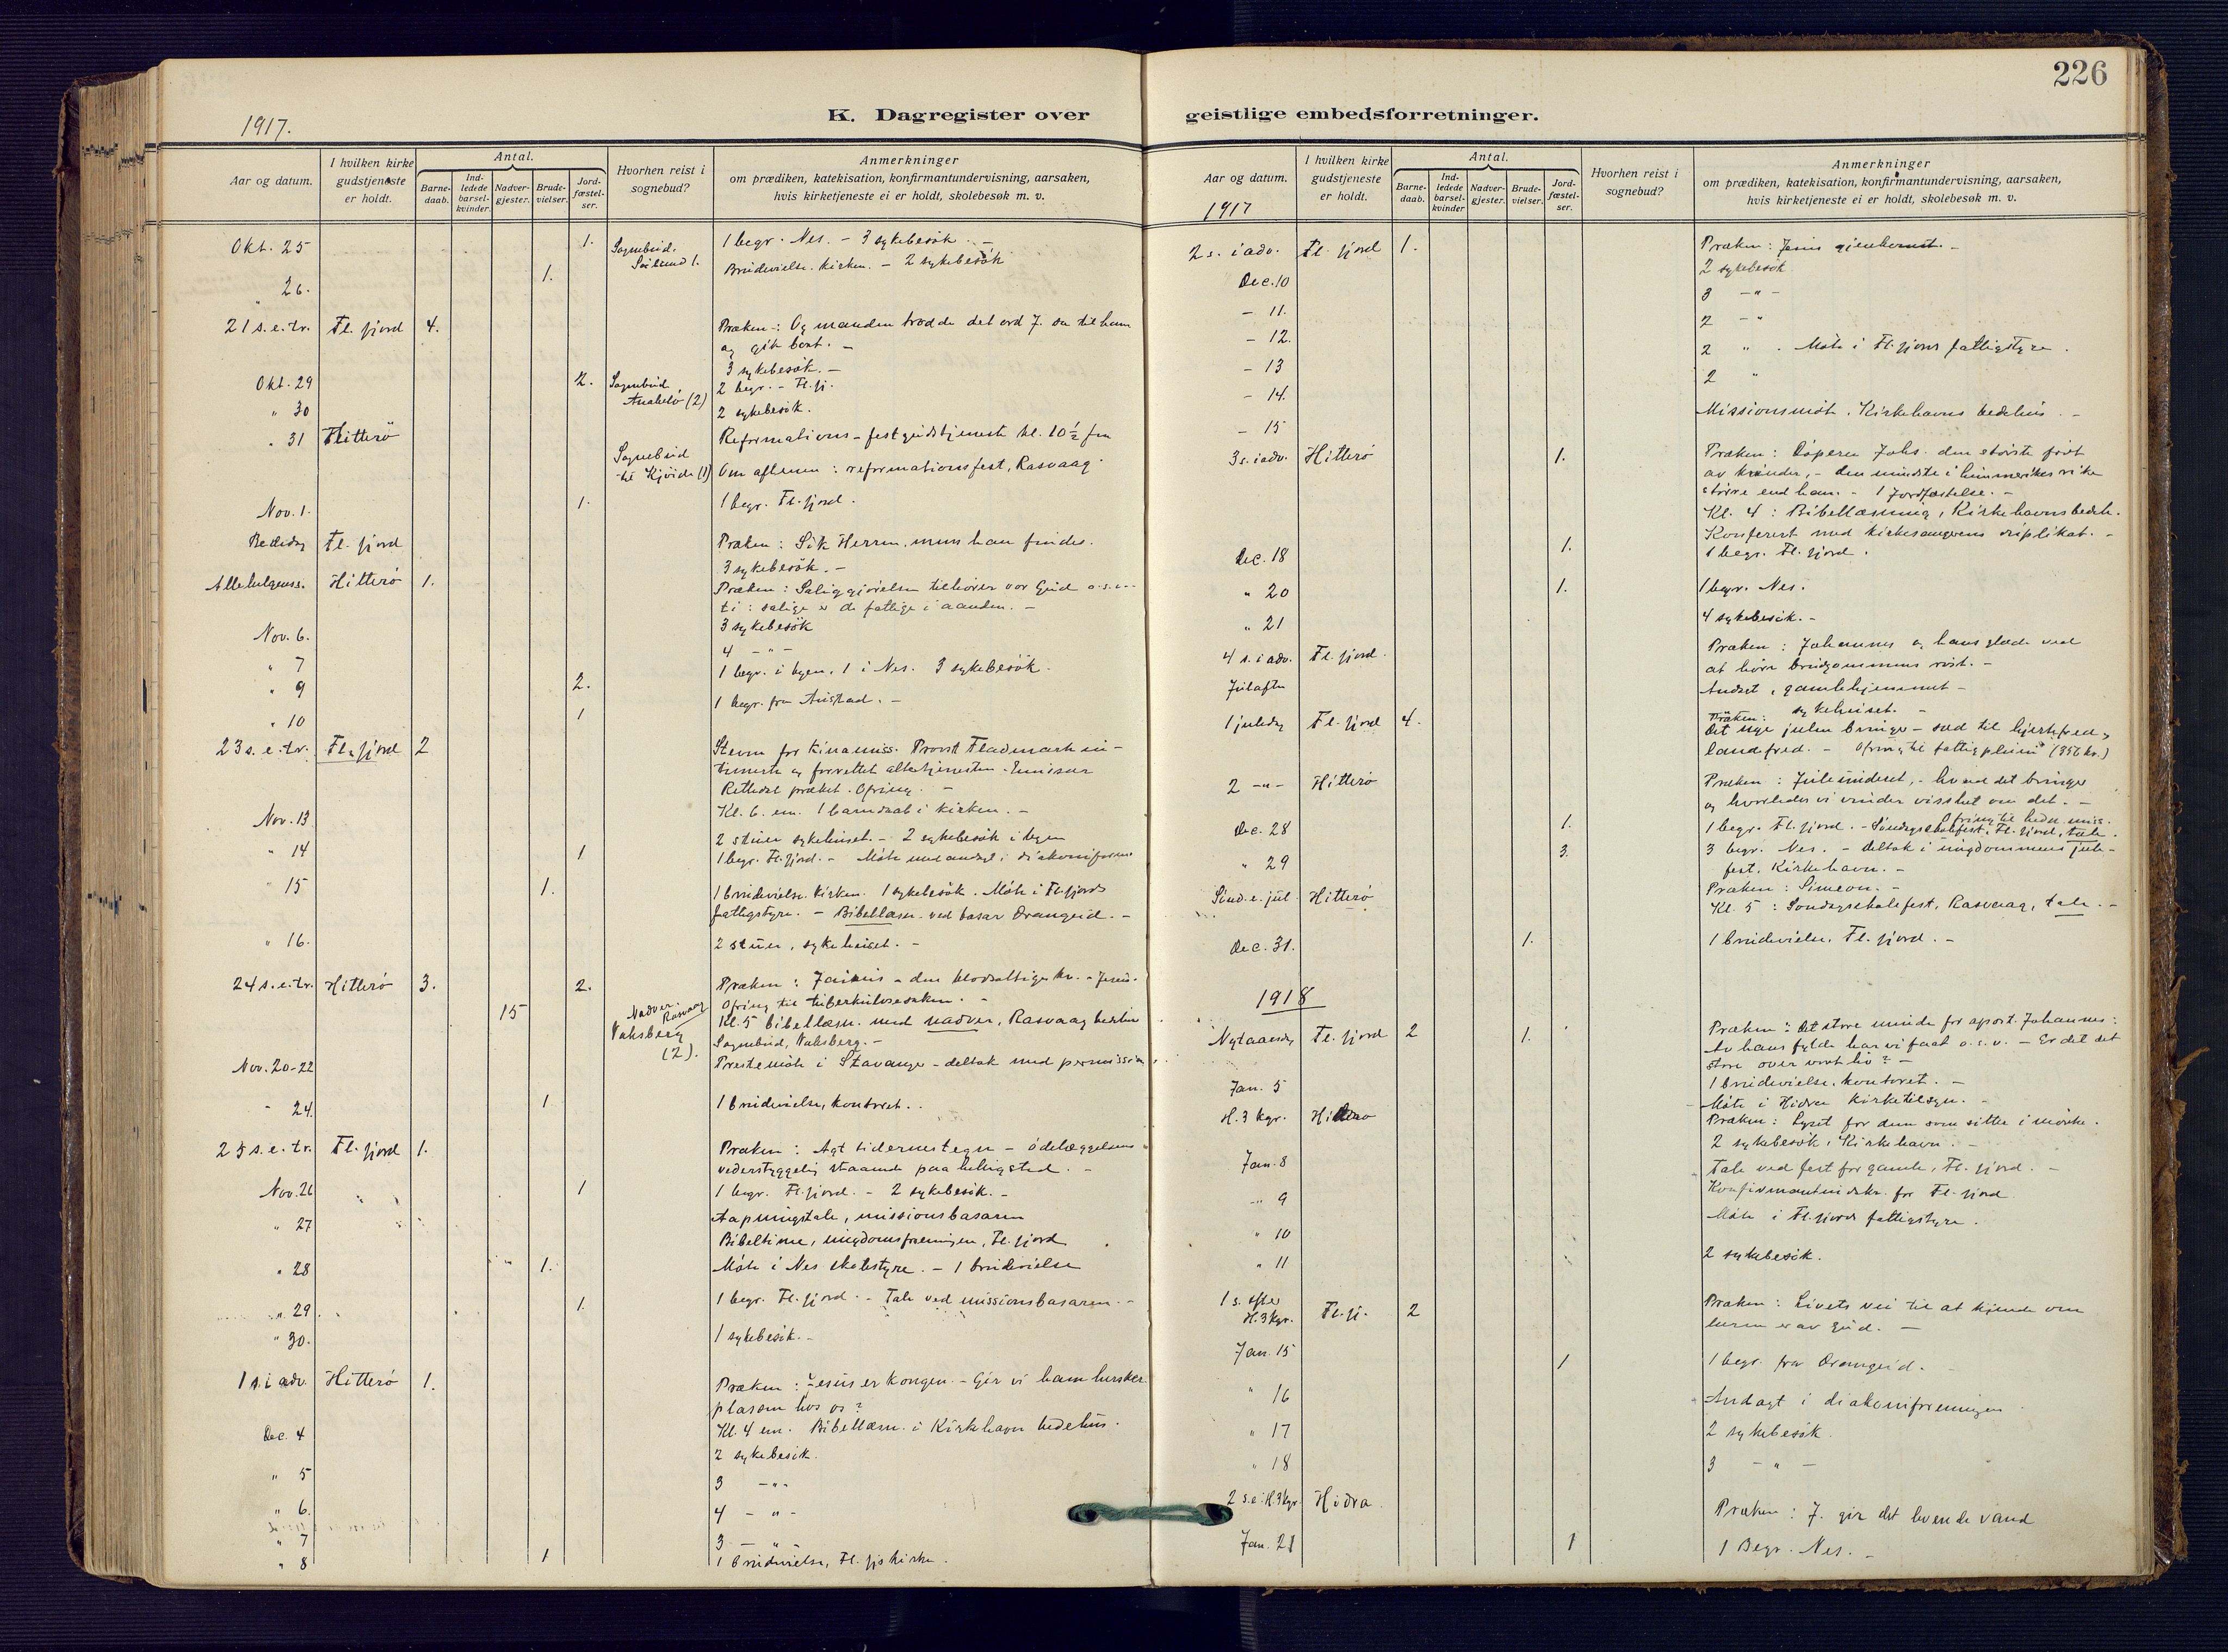 226
K. Dagregister over geistlige embedsforretninger.
1917.
Aar og datum.
I hvilken kirke gudstjeneste er holdt.
Antal.
Barne-daab.
Ind-ledede barsel-kvinder.
Nadver-gjester.
Brude-vielser.
Jord-fæstel-ser.
Hvorhen reist i sognebud?
Anmerkninger
om prædiken, katekisation, konfirmantundervisning, aarsaken,
hvis kirketjeneste ei er holdt, skolebesøk m. v.
Okt. 25 1. Sognebud. 1 begr. Nes. - 3 sykebesök. -
" 26. 1. Brudevielse. kirken. - 2 sykebesök
21 s. e. tr. Fl. fjord 4. Præken: Og manden trodde det ord J. sa til ham
og gik bort. -
3 sykebesök. -
Okt. 29 2. Sognebud 2 begr. - Fl. fj.
" 30 Anabelö (2) 2 sykebesök.
" 31 Hitterö Reformations-festgudstjeneste kl. 10 ½ fm
Sognebud
til (1) Om aftenen: reformationsfest, Rasvaag
Nov. 1. 1. 1 begr. Fl. fjord.
Bededag Fl. fjord Præken: Sök Herren, mens han findes.
3 sykebesök. -
Allehelgense. Hitterö 1. Præken: Saliggjörelsen tilhörer vor Gud o.s.v.
ti: salige er de fattige i aanden. -
Nov. 6. 3 sykebesök
" 7 4 - " -
" 9 2. 1 begr. i byen, 1 i Nes. 3 sykebesök.
" 10 1 1 begr. fra Austad. -
23 s. e. tr. Fl. fjord 2 Stevne for Kinamiss. Provst Fladmark in-
timerte og forrettet altertjenesten. Emissær
præket. Ofring. -
Kl. 6. em. 1 barnedaab i kirken. -
Nov. 13 2 stuer sykehuset. - 2 sykebesök i byen
" 14 1 1 begr. Fl. fjord. - Möte med andagt i diakoniforen.
" 15 1. 1 brudevielse. kirken. 1 sykebesök. Möte i Fl. fjords
fattigstyre. - Bibellæsn. ved basar Drangeid. -
" 16. 2 stuer, sykehuset. -
24 s. e. tr. Hitterö 3. 2. Præken: Jairus - den blodsottige kv. - Jesus.
Ofring til tuberkulosesaken. -
15 Nadver. Rasvaag Kl. 5 bibellæsn. med nadver, Rasvaag bedehus
Vaksberg (2). Sognebud, Vaksberg. -
Nov. 20-22 Prestemöte i Stavanger - deltok med permission.
" 24. 1 1 brudevielse, kontoret.
25 s. e. tr. Fl. fjord 1. Præken: Agt tidernes tegn - ödelæggelsens
vederstyggelig staaende paa helligsted. -
Nov. 26 1 1 begr. Fl. fjord. - 2 sykebesök. -
" 27 Aapningstale, missionsbasaren
Bibeltime, ungdomsforeningen, Fl. fjord
" 28 1. Möte i Nes skolestyre. - 1 brudevielse
" 29. 1. 1 begr. Fl. fjord. - Tale ved missionsbasaren. -
" 30. 1 sykebesök. -
1 s. i adv. Hitterö 1. Præken: Jesus er kongen. - Gir vi ham hersker
plassen hos os?
Kl. 4 em. Bibellæsn. i Kirkehavn bedehus.
Dec. 4 2 sykebesök.
" 5 3 - " -
" 6. 4 - " -
" 7 3 - " -
" 8 1 1 brudevielse, Fl. fjs kirke.
Aar og datum.
1917
I hvilken kirke gudstjeneste er holdt.
Antal.
Barne-daab.
Ind-ledede barsel-kvinder
Nadver-gjester.
Brude-vielser.
Jord-fæstel-ser.
Hvorhen reist i sognebud?
Anmerkninger
om prædiken, katekisation, konfirmantundervisning, aarsaken,
hvis kirketjeneste ei er holdt, skolebesøk m. v.
2 s. i adv. Fl. fjord 1. Præken: Jesus gjenkomst. -
Dec. 10 2 sykebesök
- 11. 3 - " -
- 12. 2 - "
- 13 2 " . Möte i Fl. fjords fattigstyre.
- 14. 2 "
- 15 Missionsmöte, Kirkehavns bedehus. -
3 s. i adv. Hitterö 1. Præken: Döperen Johs. den störste född
av kvinder, - den mindste i himmerikes rike
större end han. - 1 Jordfæstelse. -
Kl. 4: Bibellæsning, Kirkehavns bedeh.
Konferert med kirkesangerens vikar. -
Dec. 18 1. 1 begr. Fl. fjord.
" 20 1. 1 begr. Nes.
" 21 4 sykebesök. -
4 s. i adv. Fl. fjord. Præken: Johannes og hans glæde ved
at höre brudgommens röst. -
Julaften Andagt, gamlehjemmet -
sykehuset. -
1 juledag Fl. fjord 4. Præken:
Det nye julen bringer - bud til hjertefred,
landefred. - Ofring til fattigpleien (356 kr.)
2 - " - Hitterö Præken: Juleunderet, - hvad det bringer
og hvorledes vi vinder visshet om det. -
Ofring til hedn. miss.
Dec. 28 1. 1 begr. Fl. fjord. - Söndagsskolefest, Fl. fjord, tale.
" 29 3. 3 begr. Nes. - Deltok i ungdommens jule-
fest, Kirkehavn. -
Sönd. e. jul Hitterö Præken: Simeon. -
Kl. 5: Söndagsskolefest, Rasvaag, tale. -
Dec. 31. 1. 1 brudevielse, Fl. fjord. -
1918
Nytaarsdag Fl. fjord 2 1. Præken: Det store minde for apost. Johannes:
Av hans fylde har vi faat o.s.v. - Er det det
store over vort liv? -
1 brudevielse, kontoret. -
Jan. 5 Möte i Hidra kirketilsyn. -
H. 3 kgr. Hitterö Præken: Lyset for dem som sitter i mörke.
2 sykebesök, Kirkehavn. -
Jan. 8 Tale ved fest for gamle, Fl. fjord. -
" 9 Konfirmantindskr. for Fl. fjord
" 10 Möte i Fl. fjords fattigstyre.
" 11 2 sykebesök.
1 s. efter H. 3 kgr. Fl. fj. 2 Præken: Livets vei til at kjende om
læren er av Gud. -
Jan. 15 1 1 begr. fra Drangeid. -
" 16 Andagt i diakoniforeningen
" 17 2 sykebesök.
" 18 3 - " -
2 s. e. H. 3 kgr. Hidra Præken: J. gir det levende vand
Jan. 21 1 1 Begr. Nes. -